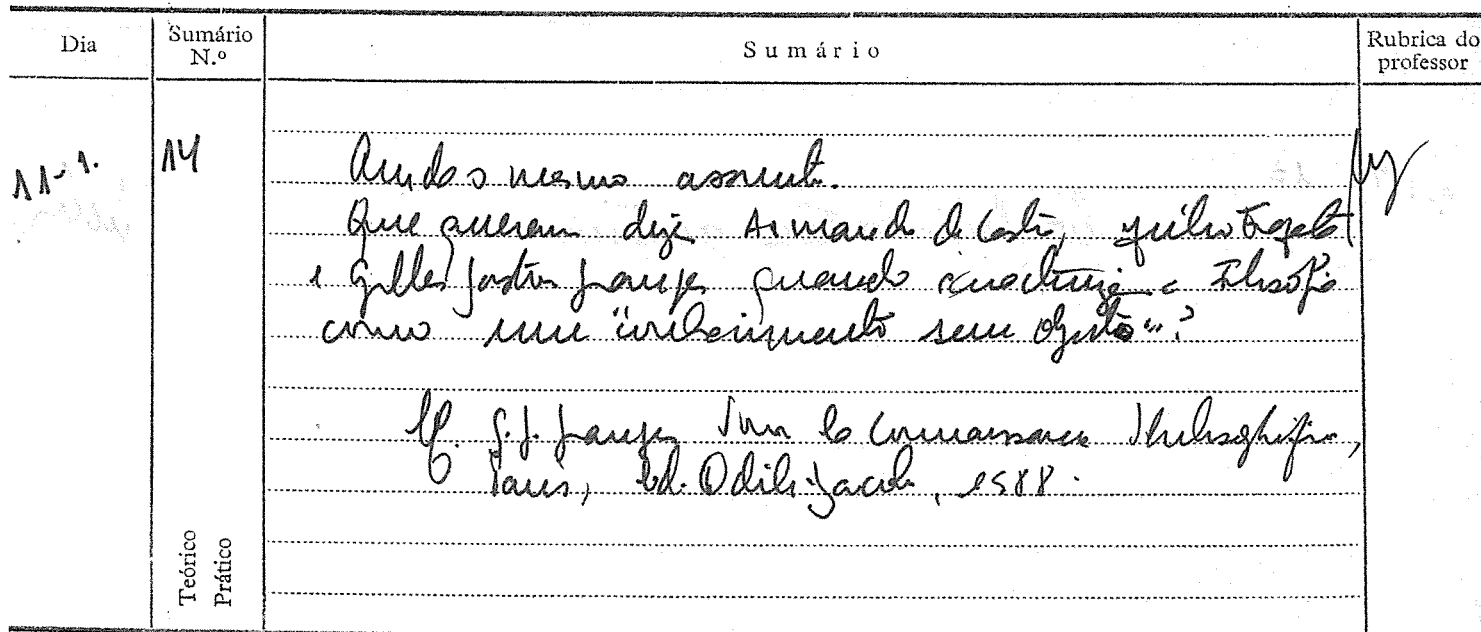 Dia
Sumário N.º
Sumário
Rubrica do professor
11-1.
14
Ainda o mesmo assunto.
Que querem dizer Armando de Castro, Júlio Fragata
e Gilles Gaston Granger quando caracterizam a Filosofia
como um "conhecimento sem objecto"?
Cf. G.G. Granger Pour la Connaissance Philosophique,
Paris, Ed. Odile Jacob, 1988.
Teórico
Prático